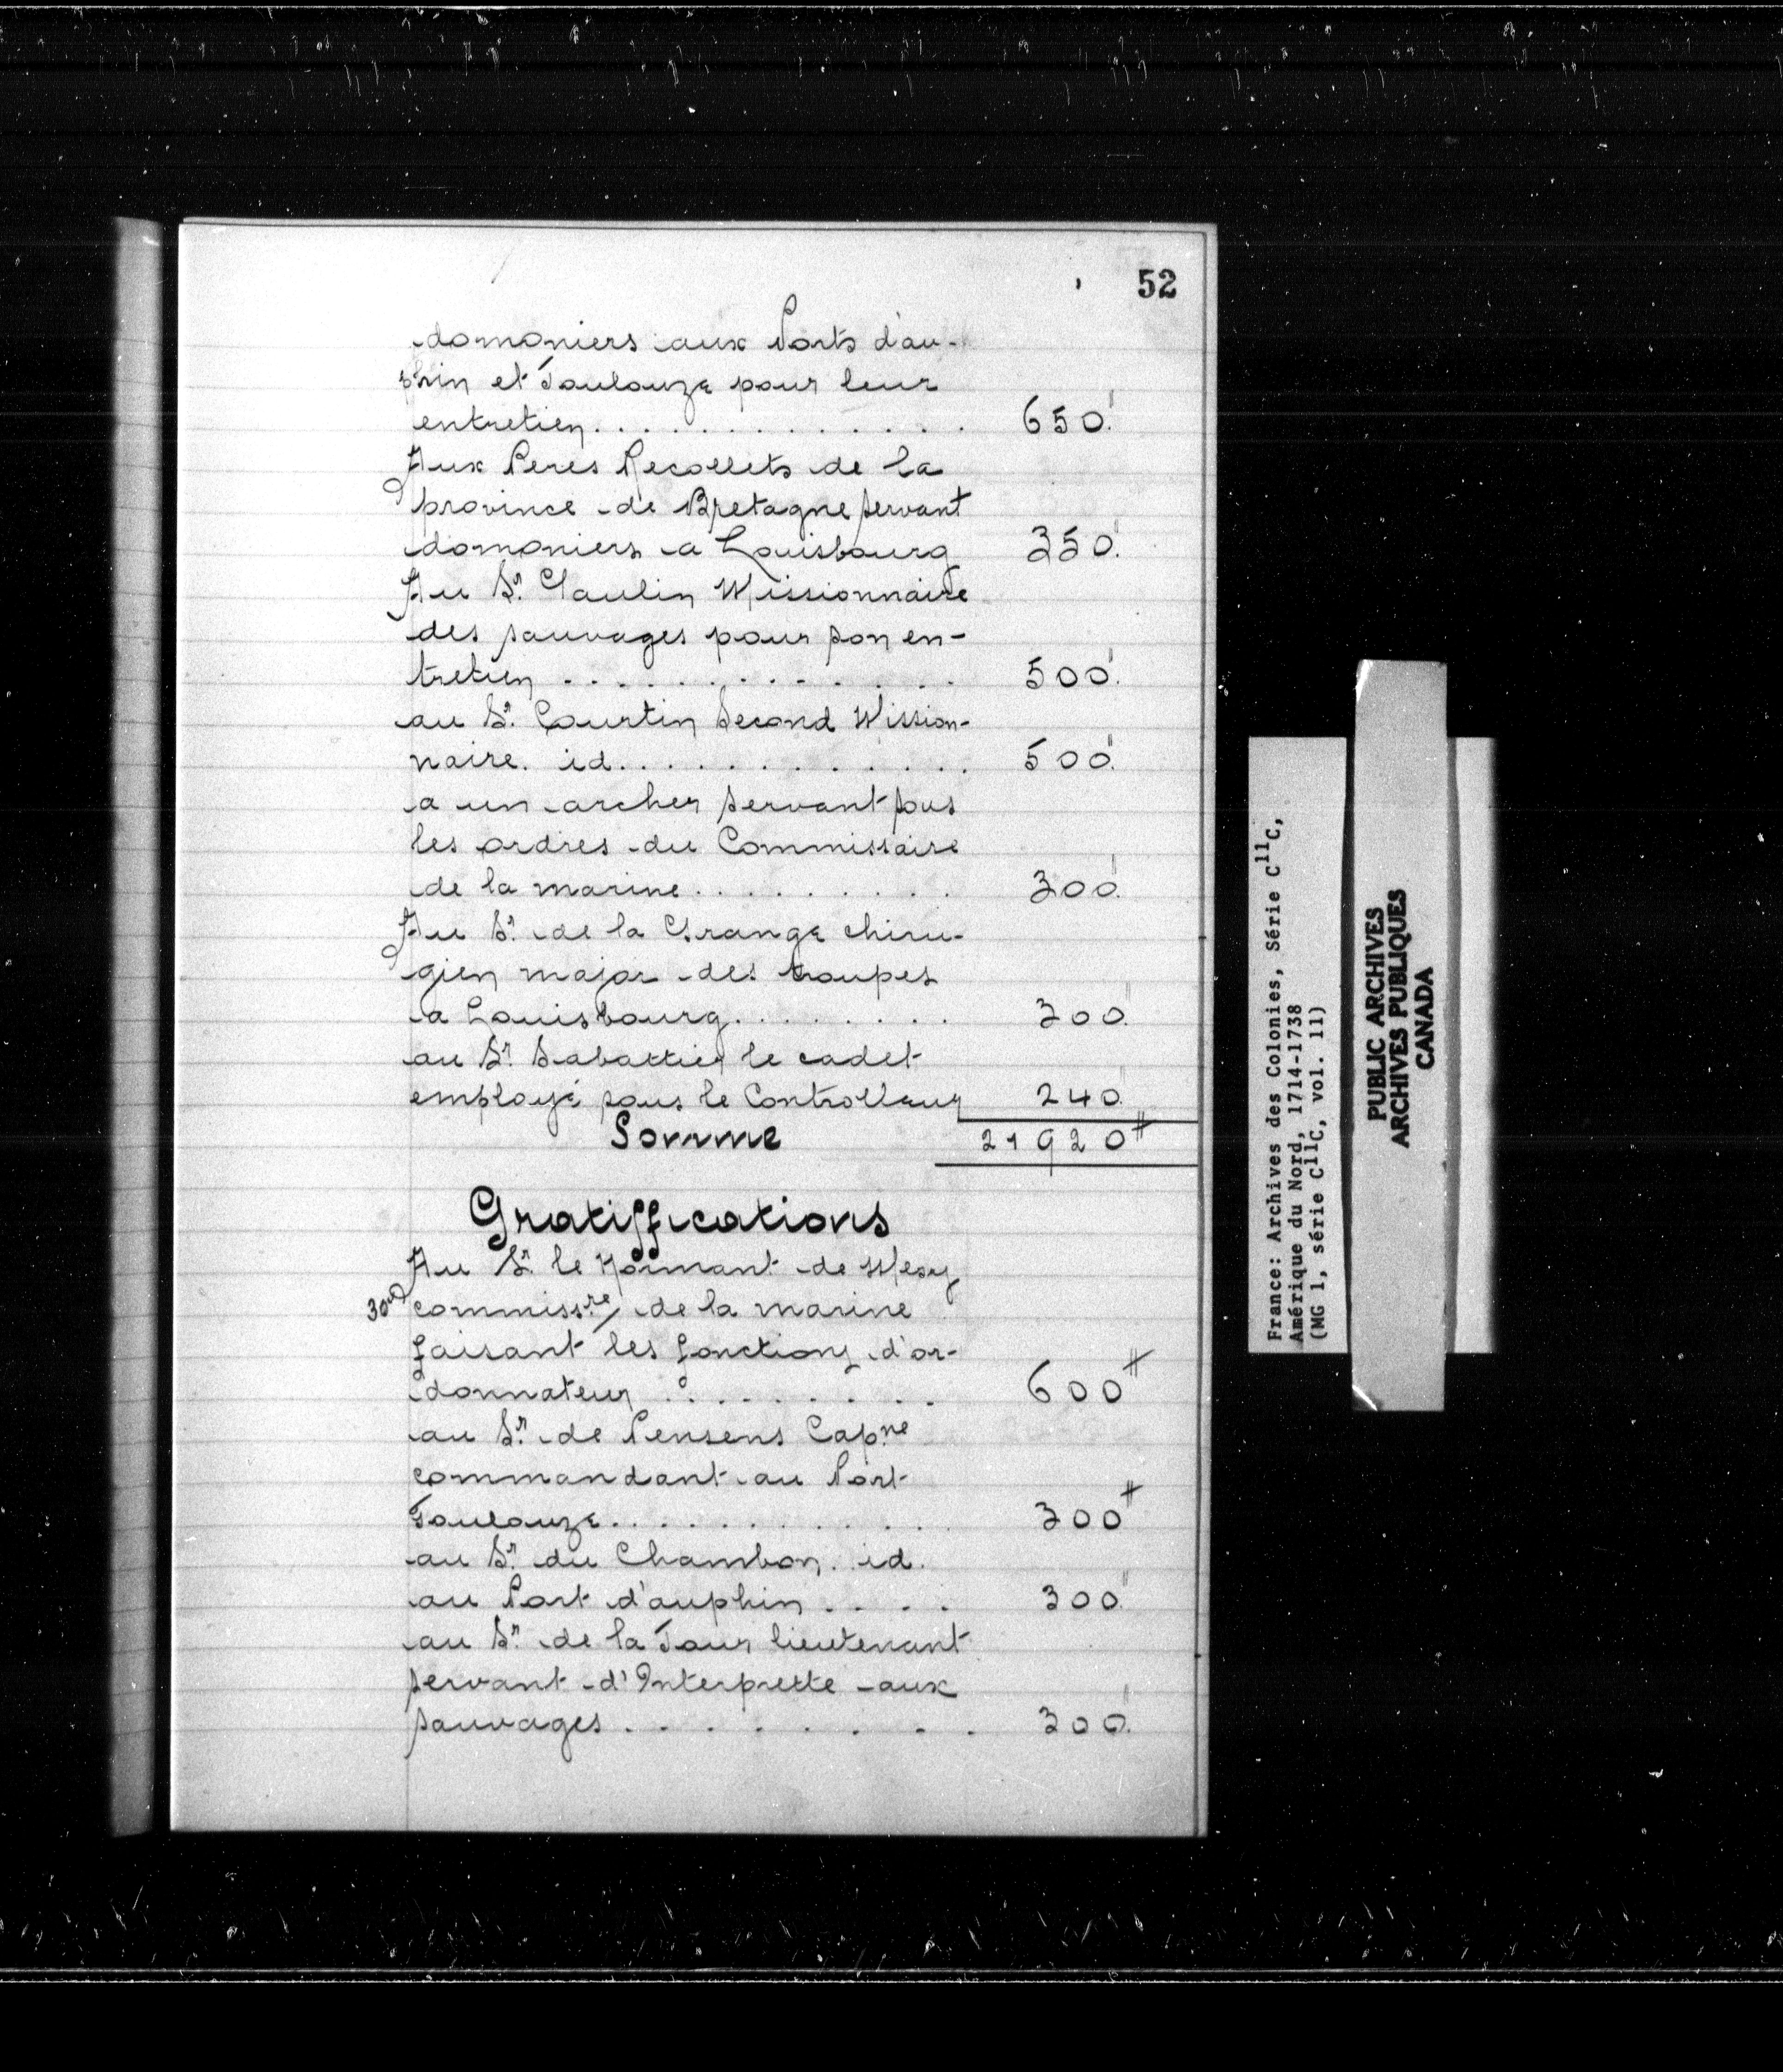 52
domoniers aux Ports d'au-
phin et Toulouze pour leur
entretien............. 650.
Aux Peres Recollets de la
province de Bretagne servant
domoniers a Louisbourg 350.
Au Sr. Gaulin Missionnaire
des sauvages pour son en-
tretien .............. 500.
au Sr. Courtin Second Mission-
naire. id............. 500.
a un archer servant sous
les ordres du Commissaire
de la marine.......... 300.
Au Sr. de la Grange chiru-
gien major des troupes
a Louisbourg......... 300.
au Sr. Sabattier le cadet
employé sous le Controlleur 240
Somme 21920#
Gratiffications
Au Sr. le Normant de Mesy
commissre de la marine
faisant les fonctions d'or-
donnateur .......... 600#
au Sr. de Pensens Capne
commandant au Port
Toulouze............. 300#
au Sr. du Chambon. id.
au Port d'auphin .... 300
au Sr. de la Tour lieutenant
servant d'Interprette aux
sauvages ......... 300.
France: Archives des Colonies, Série C11C,
Amérique du Nord, 1714-1738
(MG 1, série C11C, vol. 11)
PUBLIC ARCHIVES
ARCHIVES PUBLIQUES
CANADA